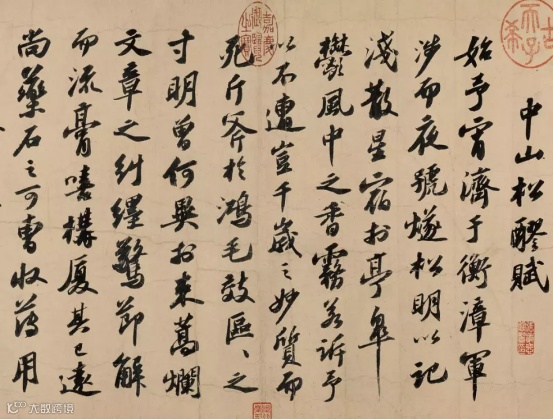 中山松醪賦
始予宵濟于衡漳軍
涉而夜號燧松明以記
淺散星宿於亭皋
鬱風中之香霧若訴予
以不遭豈千歲之妙質而
死斤斧於鴻毛效區區之
寸明曾何異於束蒿爛
文章之糾纏驚節解
而流膏嘻構廈其已遠
尚藥石之可曹收薄用
古希天子
嘉慶御覽之寶
大数跨境